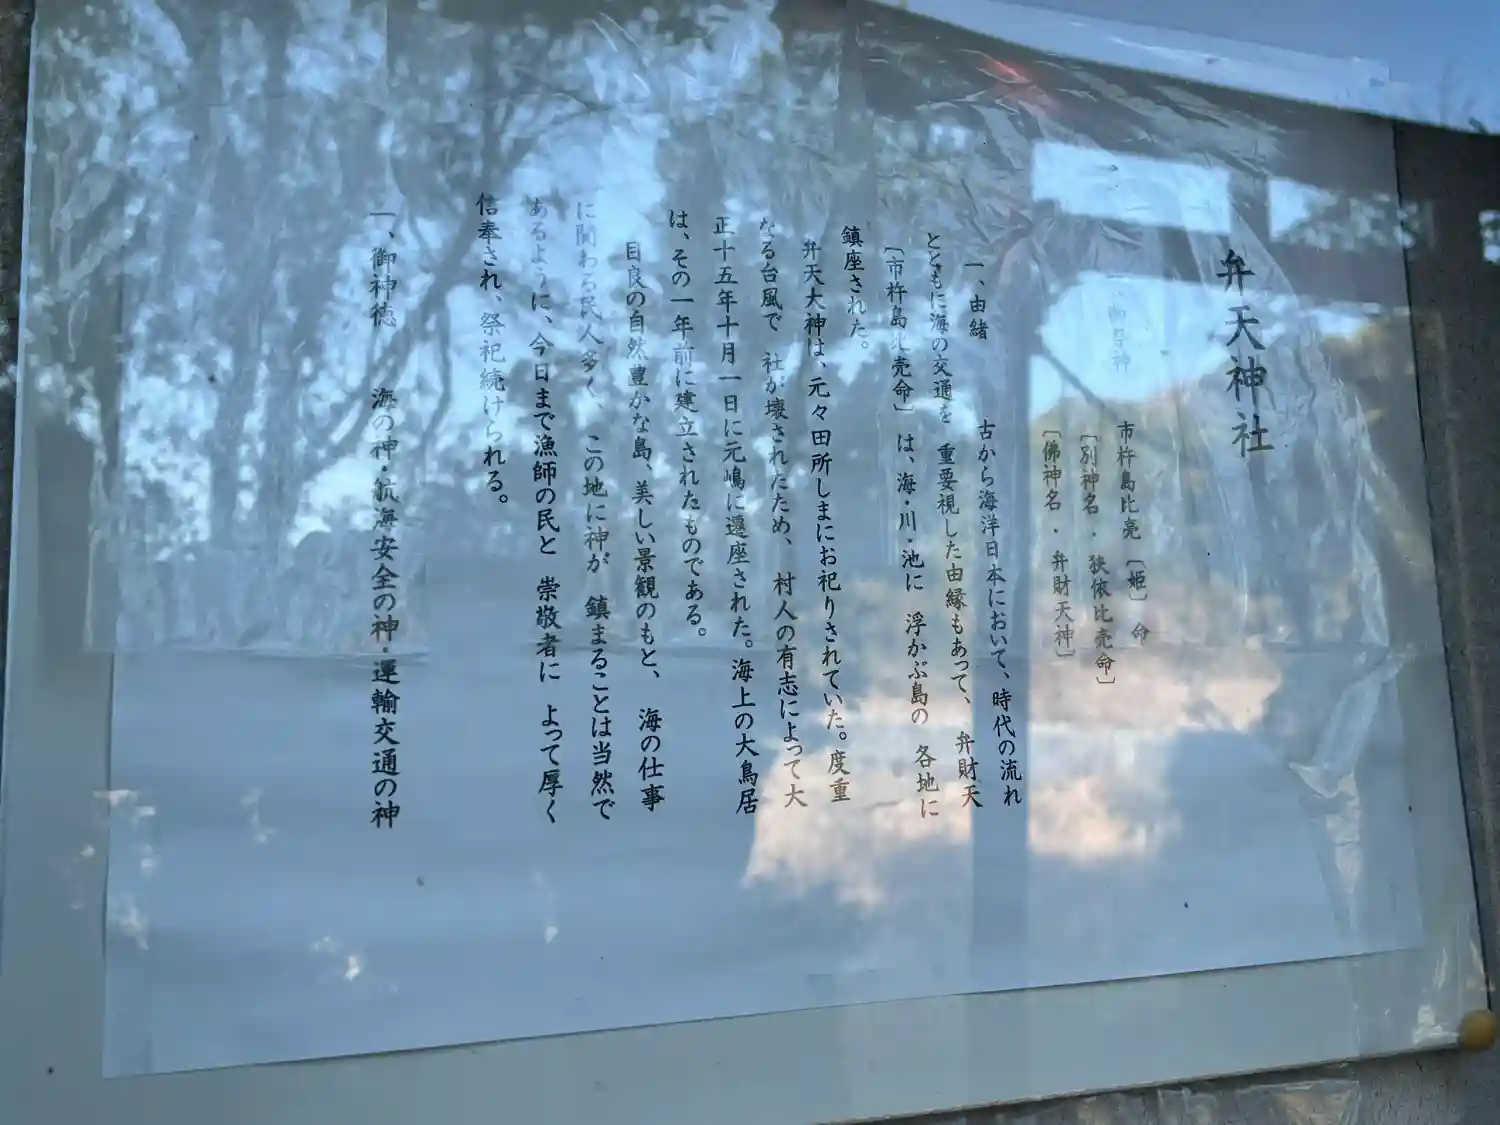 弁天神社
一、御祭神
市杵島比売〔姫〕命
〔別神名・狭依比売命〕
〔佛神名・弁財天神〕
一、由緒 古から海洋日本において、時代の流れ
とともに海の交通を 重要視した由縁もあって、弁財天
〔市杵島比売命〕は、海・川・池に 浮かぶ島の 各地に
鎮座された。
弁天大神は、元々田所しまにお祀りされていた。度重
なる台風で 社が壊されたため、村人の有志によって大
正十五年十月一日に元嶋に遷座された。海上の大鳥居
は、その一年前に建立されたものである。
目良の自然豊かな島、美しい景観のもと、海の仕事
に関わる民人多く、この地に神が 鎮まることは当然で
あるように、今日まで漁師の民と 崇敬者に よって厚く
信奉され、祭祀続けられる。
一、御神徳 海の神・航海安全の神・運輸交通の神